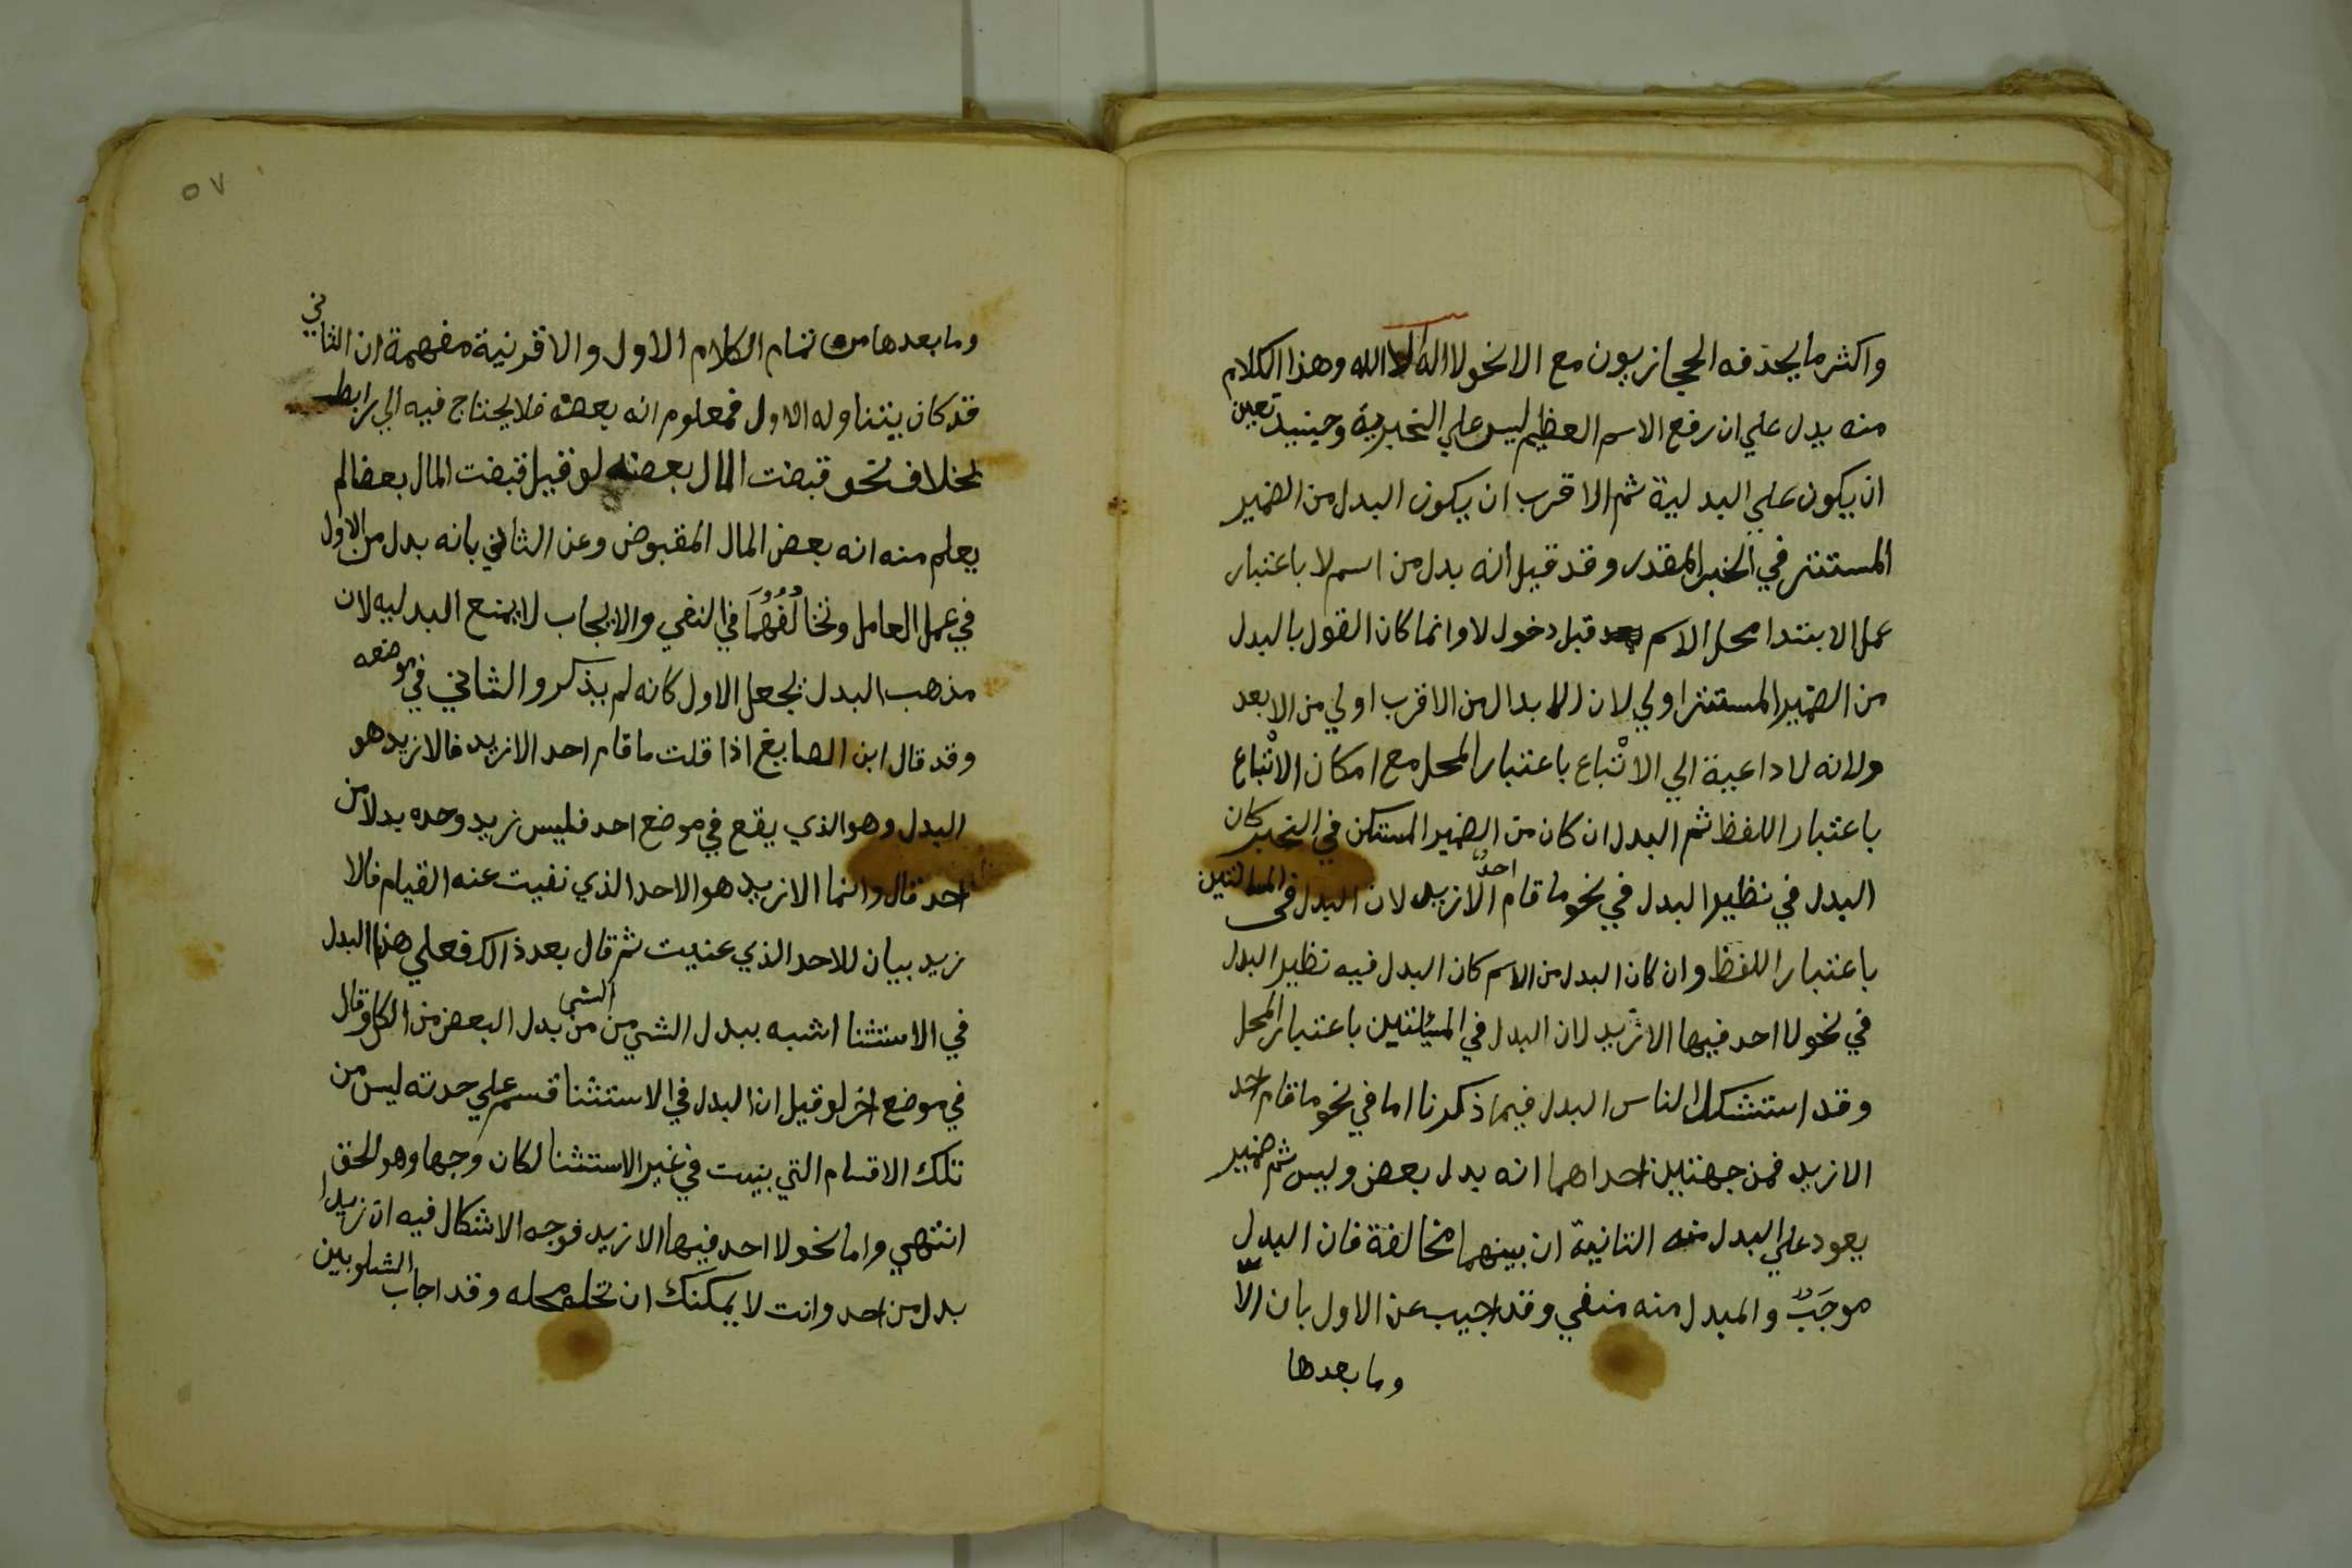 واكثر ما يحذفه الحجازيون مع الا نحو لا اله الا الله وهذا الكلام
منه يدل علي ان رفع الاسم العظيم ليس علي الخبرية وحينيد تعين
ان يكون علي البدلية ثم الاقرب ان يكون البدل من الضمير
المستتر في الخبر المقدر وقد قيل انه بدل من اسم لا باعتبار
عمل الابتدا محل الاسم قبل دخول لا وانما كان القول بالبدل
من الضمير المستتر اولي لان الابدال من الاقرب اولي من الابعد
ولانه لا داعية الي الاتْباع باعتبار المحل مع امكان الاتْباع
باعتبار اللفظ ثم البدل ان كان من الضمير المستكن في الخبر كان
البدل في نظير البدل في نحو ما قام احدٌ الا زيد لان البدل في المسالتين
باعتبار اللفظ وان كان البدل من الاسم كان البدل فيه نظير البدل
في نحو لا احد فيها الا زيد لان البدل في المسئلتين باعتبار المحل
وقد استشكل الناس البدل فيما ذكرنا اما في نحو ما قام احد
الا زيد فمن جهتين احداهما انه بدل بعض وليس ثم ضمير
يعود علي البدل منه الثانية ان بينهما مخالفة فان البدل
موجَبٌ والمبدل منه منفي وقد اجيب عن الاول بان الاّ
وما بعدها
٥٧
وما بعدها من تمام الكلام الاول والا قرنية مفهمة ان الثاني
قد كان يتناوله الاول فمعلوم انه بعضه فلا يحتاج فيه الي رابط
بخلاف نحو قبضت المال بعضه لو قيل قبضت المال بعضا لم
يعلم منه انه بعض المال المقبوض وعن الثاني بانه بدل من الاول
في عمل العامل وتخالُفُهُمَا في النفي والايجاب لا يمنع البدليه لان
مذهب البدل يجعل الاول كانه لم يذكر والثاني في موضعه
وقد قال ابن الصايغ اذا قلت ما قام احد الا زيد فالا زيد هو
البدل وهو الذي يقع في موضع احد فليس زيد وحده بدلا من
احد قال وانما الا زيد هو الاحد الذي نفيت عنه القيام فالا
زيد بيان للاحد الذي عنيت ثم قال بعد ذالك فعلي هذا البدل
في الاستثنا اشبه ببدل الشي من الشي من بدل البعض من الكل وقال
في موضع اخر لو قيل ان البدل في الاستثنا قسم علي حدته ليس من
تلك الاقسام التي بنيت في غير الاستثنا لكان وجها وهو الحق
انتهي واما نحو لا احد فيها الا زيد فوجه الاشكال فيه ان زيدا
بدل من احد وانت لا يمكنك ان تحله محله وقد اجاب الشلوبين